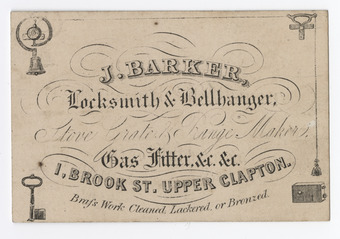 J. BARKER,
Locksmith & Bellhanger,
Stove Grate & Range Maker,
Gas Fitter, &c. &c.
1, BROOK ST. UPPER CLAPTON.
Brass Work Cleaned, Lackered, or Bronzed.